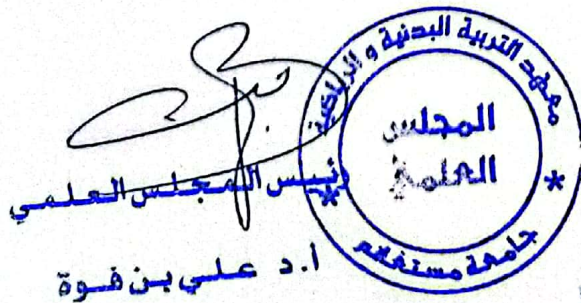 معهد التربية البدنية و الرياضية
المجلس
العلمي
جامعة مستغانم
رئيس المجلس العلمي
أ.د علي بن قوة